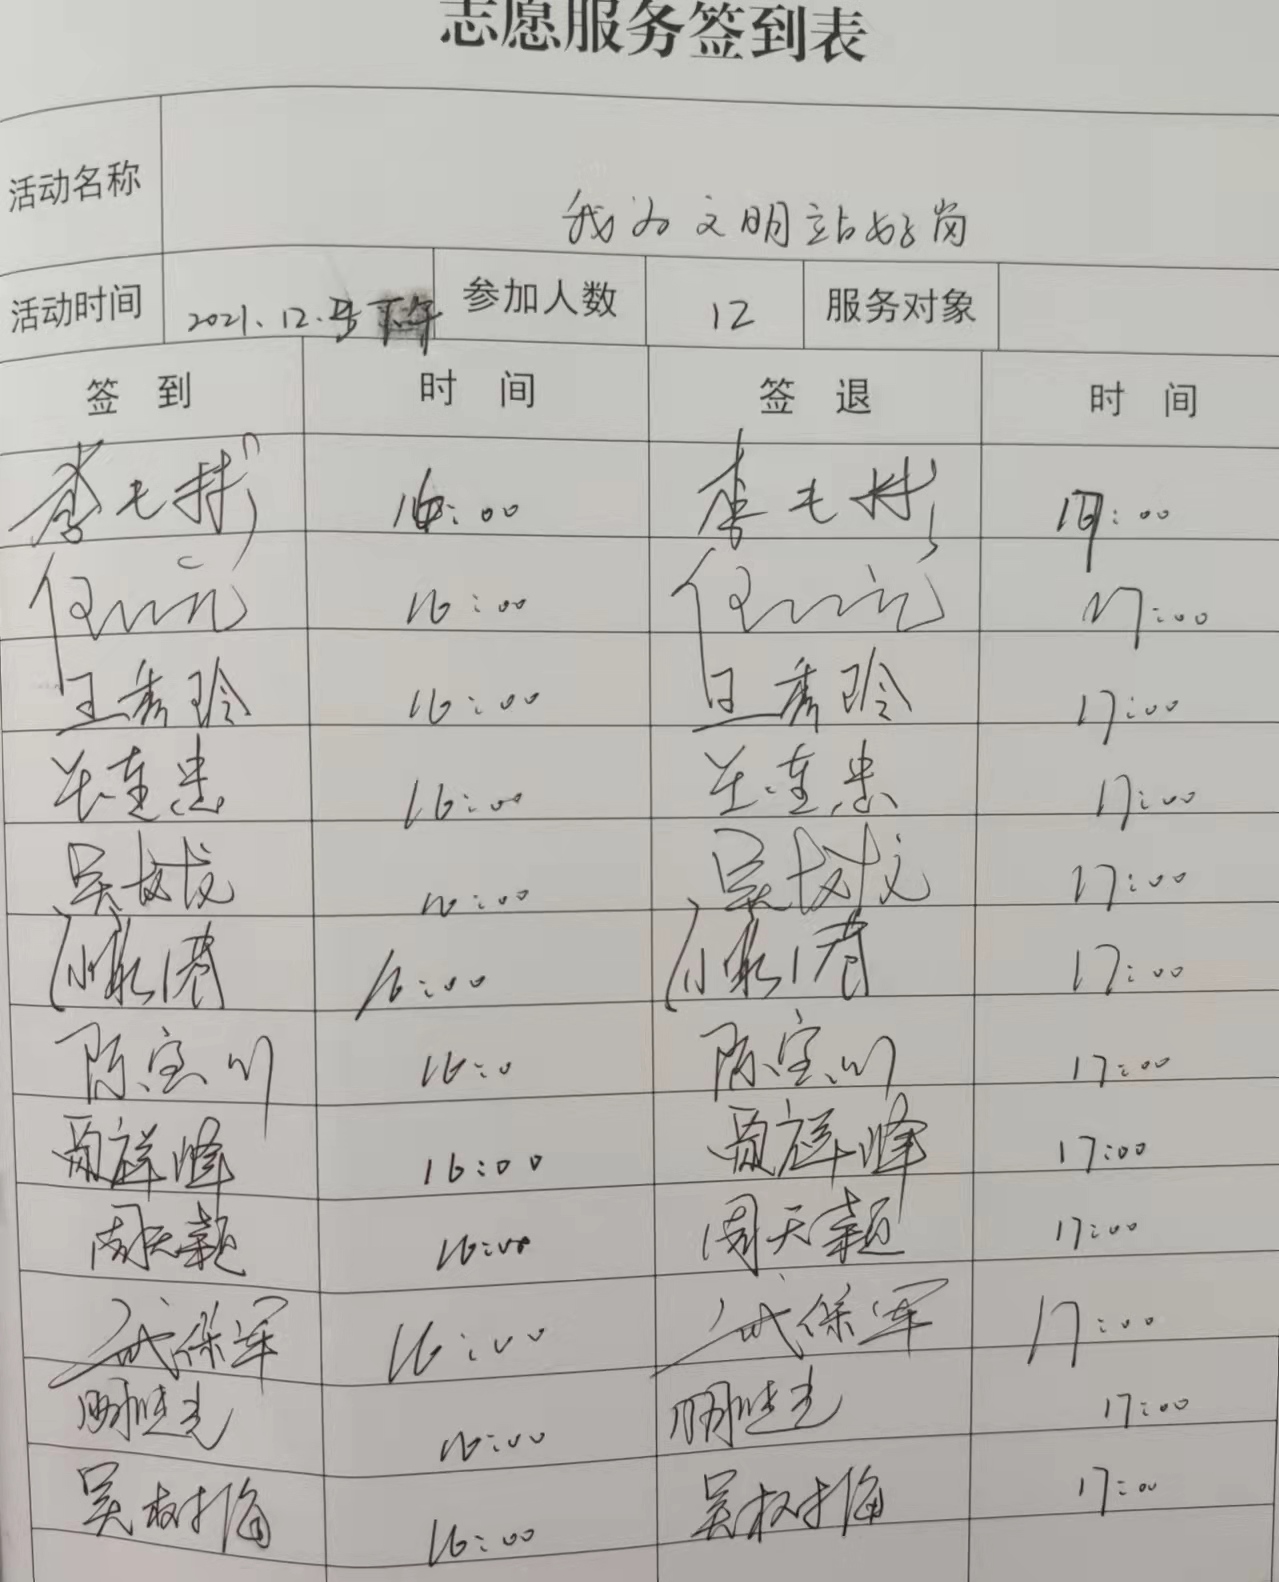 志愿服务签到表
活动名称 我为文明站好岗
活动时间 2021.12. 下午 参加人数 12 服务对象
签到 时间 签退 时间
李七村 16:00 李七村 17:00
任 元 16:00 任 元 17:00
王秀玲 16:00 王秀玲 17:00
连忠 16:00 连忠 17:00
吴 16:00 吴 17:00
16:00 17:00
陈宝川 16:0 陈宝川 17:00
贾祥峰 16:00 贾祥峰 17:00
周天颖 16:00 周天颖 17:00
武保军 16:00 武保军 17:00
16:00 17:00
吴树海 16:00 吴树海 17:00